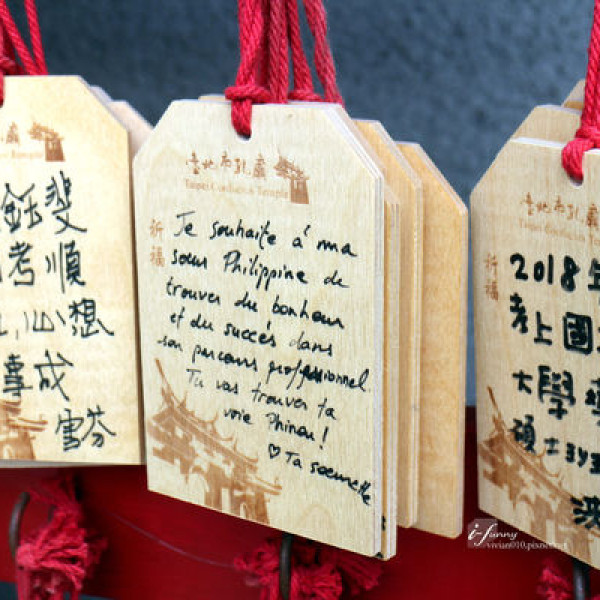 鈺斐
考順
心想
事成
雪芬
臺北市孔廟
Taipei Confucius Temple
祈福
Je souhaite à ma
sœur Philippine de
trouver du bonheur
et du succès dans
son parcours professionnel.
Tu vas trouver ta
voie Phinou!
♡ Ta soeurette
臺北市孔廟
Taipei Confucius Temple
祈福
2018年
考上國
大學
碩士
i-funny
vivian010.pixnet.net